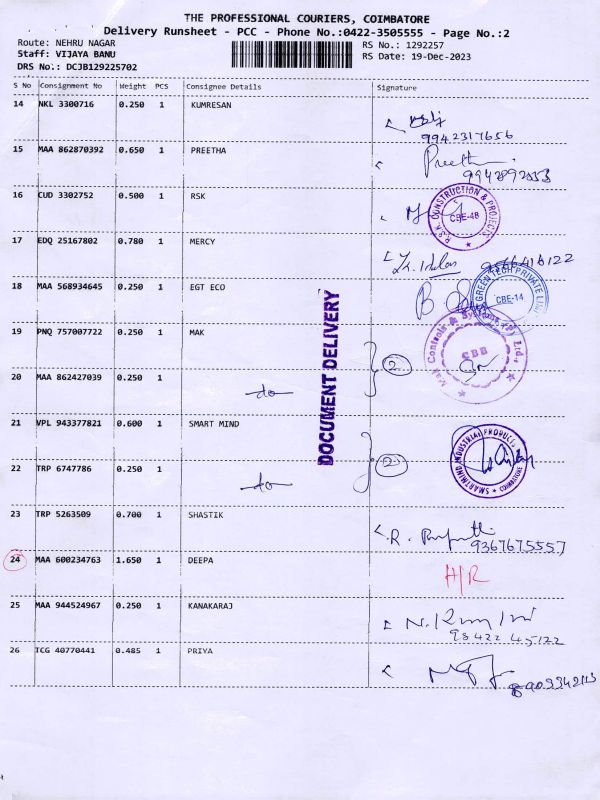 THE PROFESSIONAL COURIERS, COIMBATORE
Delivery Runsheet - PCC - Phone No.:0422-3505555 - Page No.:2
Route: NEHRU NAGAR
Staff: VIJAYA BANU
DRS No.: DCJB129225702
RS No.: 1292257
RS Date: 19-Dec-2023
S No Consignment No Weight PCS Consignee Details Signature
14 NKL 3300716 0.250 1 KUMRESAN
9942317656
15 MAA 862870392 0.650 1 PREETHA Preetha
16 CUD 3302752 0.500 1 RSK
R.S.K. CONSTRUCTION & PROJECTS CBE-48
17 EDQ 25167802 0.780 1 MERCY
18 MAA 568934645 0.250 1 EGT ECO
GREEN TECH PRIVATE LIMI CBE-14
19 PNQ 757007722 0.250 1 MAK
Mak Controls & Systems (P) Ltd., CBE
2
20 MAA 862427039 0.250 1
do
DOCUMENT DELIVERY
21 VPL 943377821 0.600 1 SMART MIND
SMARTMIND INDUSTRIAL PRODUCTS COIMBATORE
2
22 TRP 6747786 0.250 1
do
23 TRP 5263509 0.700 1 SHASTIK
9367675557
24 MAA 600234763 1.650 1 DEEPA H/R
25 MAA 944524967 0.250 1 KANAKARAJ
98422 45122
26 TCG 40770441 0.485 1 PRIYA